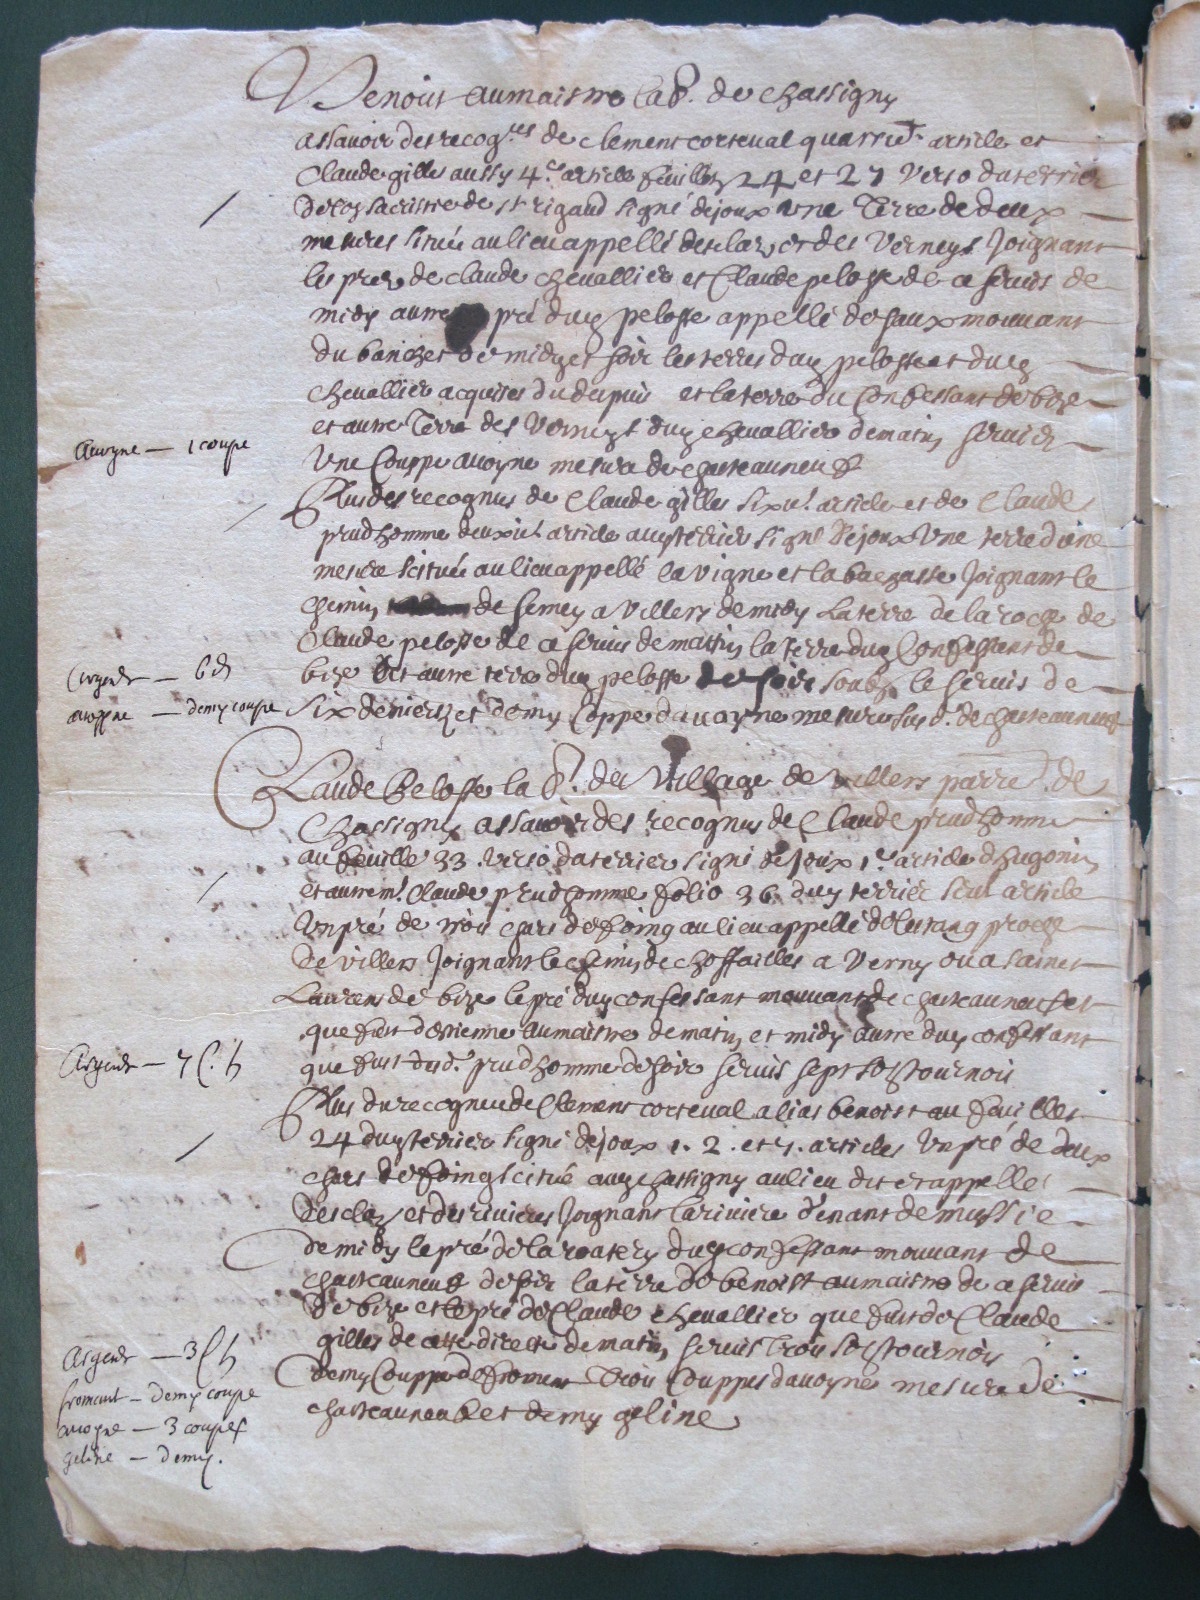 Benoist aumaistre lab.r de chassigny
assavoir des recog.ces de clement corteval quatrie.e article et
Claude gilles aussy 4.e article feuilletz 24 et 27 verso du terrier
signé dejoux une Terre de deux
mesures située au lieu appellé des claz et des Verneys Joignant
les prez de claude chevallier et Claude pelosse de ce servis de
midy autre pré dud pelosse appellé mouvant
du de midy et soir les terres dud pelosse et dud
chevallier acquises du depuis et la terre du Confessant de bize
et autre Terre des Verneys dud chevallier de matin, servis
Avoyne — 1 coupe
Une Couppe avoyne mesure de chasteauneuf
Plus des recognus de Claude gilles sixie.e article et de Claude
prudhomme deuxie.e article aud terrier signé Dejoux Une terre d'une
mesure scituée au lieu appellé la vigne et la Joignant le
chemin de Semey a villers de midy La terre de la roche de
Claude pelosse de ce servis de matin, la terre dud Confessant de
Argent — 6 d
bize et autre terre dud pelosse de soir soubz le servis de
avoyne — demy coupe
Six deniers et demy Coppe d'avoyne mesure sus d. de chasteauneuf
Claude Pelosse la b.r du Village de villers parre. de
Chassigny assavoir des recognus de Claude prudhomme
au feuille 33 verso du terrier signé dejoux 1.er article d'hugonin,
et autrem.t Claude prudhomme folio 36 dud terrier seul article
Un pré de trois chars de foing au lieu appellé de lestang proche
de villers Joignant le chemin de choffailles a Verny ou a sainct
Laurens de bize le pré dud confessant mouvant de chasteauneuf et
que fust destienne aumaistre de matin, et midy autre dud confessant
Argent — 7 s. t
que fust dud. prudhomme de soir servis sept solz tournois
Plus du recogneu de Clement corteval alias benoist au feuillet
24 dud terrier signé dejoux 1. 2. et 7. articles Un pré de deux
chars de foing scitué aud chassigny au lieu dit et appellé
des claz et des rivieres Joignant la riviere d'enant de mussie
de midy le pré de dud confessant mouvant de
chasteauneuf de soir la terre de benoist aumaistre de ce servis
de bize et le pré de Claude chevallier que fust de Claude
Argent — 3 s t
gilles de cette directe de matin, servis trois solz tournois
froment — demy coupe
demy Couppe de froment Trois Couppes d'avoyne mesure de
avoyne — 3 coupes
chasteauneuf et demy geline
geline — demy.